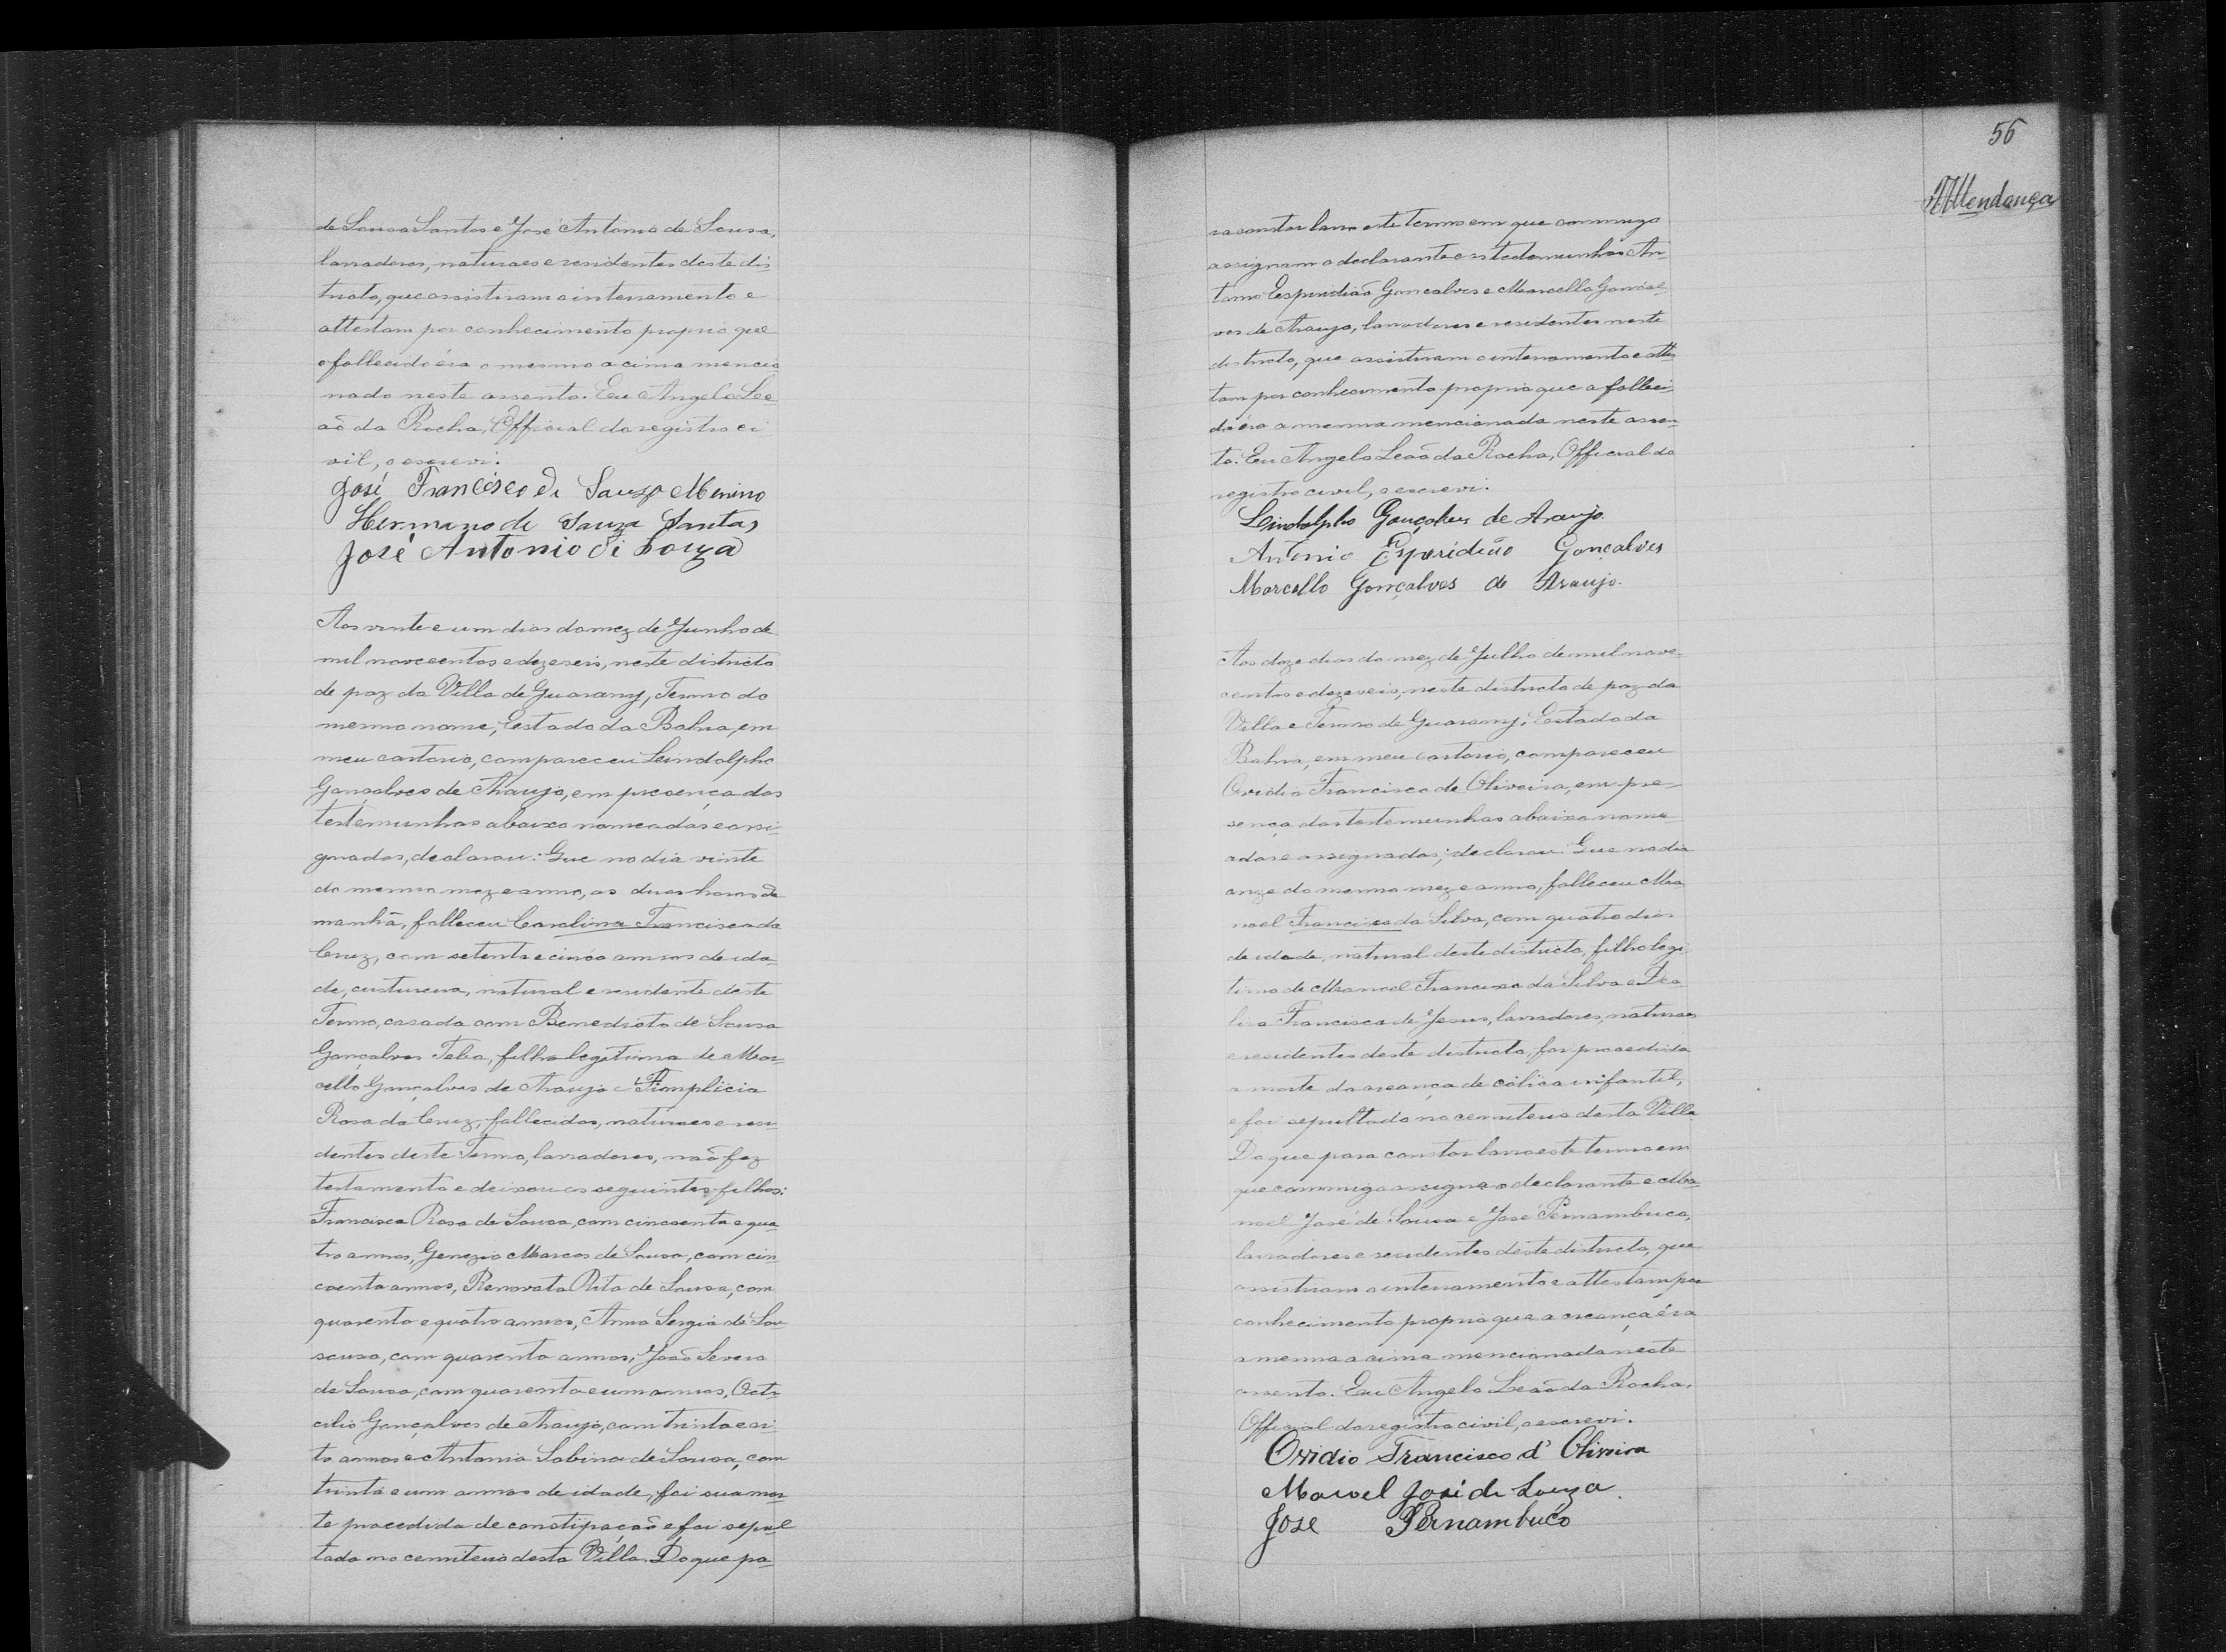 de Sousa Santos e José Antonio de Sousa,
lavradores, naturaes e residentes deste dis
tricto, que assistiram o interramento e
attestam por conhecimento proprio que
o fallecido éra o mesmo acima mencio
nado neste assento. Eu Angelo Le
aõ da Rocha, Official do registro ci
vil, o escrevi.
José Francisco de Souza Menino
Hermano de Souza Santos
José Antonio de Souza
Aos vinte e um dias do mez de Junho de
mil novecentos e dezeseis, neste districto
de paz da Villa de Guarany, Termo do
mesmo nome, Estado da Bahia, em
meu cartorio, compareceu Leindolpho
Gonçalves de Araujo, em presença das
testemunhas abaixo nomeadas e assi
gnadas, declarou: Que no dia vinte
do mesmo mez e anno, as duas horas da
manhã, falleceu Carolina Francisca da
Cruz, com setenta e cinco annos de ida-
de, custureira, natural e residente deste
Termo, casada com Benedicto de Sousa
Gonçalves Telia, filha legitima de Mar-
cello Gonçalves de Araujo e Simplicia
Rosa da Cruz, fallecidos, naturaes e resi-
dentes deste Termo, lavradores, naõ fez
testamento e deixou os seguintes filhos:
Francisca Rosa de Sousa, com cincoenta e qua
tro annos, Genezio Marcos de Sousa, com cin
coenta annos, Renovata Rita de Sousa, com
quarenta e quatro annos, Anna Sergia de Sou
sousa, com quarenta annos, João Severo
de Sousa, com quarenta e um annos, Octa
cilio Gonçalves de Araujo, com trinta e oi
to annos e Antonia Sabina de Sousa, com
trinta e um annos de idade, foi sua mor
te procedida de constipaçaõ e foi sepul
tada no cemiterio desta Villa. Do que pa-
56
Attendança
ra constar lavro este termo em que commigo
assignam o declarante e as testemunhas An
tonio Esperidiaõ Gonçalves e Marcello Gonçal-
ves de Araujo, lavradores e residentes neste
districto, que assistiram o interramento e attes
tam por conhecimento proprio que a falleci-
da éra a mesma mencionada neste assen-
to. Eu Angelo Leaõ da Rocha, Official do
registro civil, o escrevi.
Leindolpho Gonçalves de Araujo.
Antonio Esperidião Goncalves
Marcello Gonçalves de Araujo.
Aos doze dias do mez de Julho de mil nove-
centos e dezeseis, neste districto de paz da
Villa e Termo de Guarany, Estado da
Bahia, em meu cartorio, compareceu
Ovidio Francisco de Oliveira, em pre-
sença das testemunhas abaixo nome
adas e assignadas; declarou: Que no dia
onze do mesmo mez e anno, falleceu Ma
noel Francisco da Silva, com quatro dias
de idade, natural deste districto, filho legi
timo de Manoel Francisco da Silva e
Francisca de Jesus, lavradores, naturaes
e residentes deste districto, foi procedida
a morte da creança de cólica infantil,
e foi sepultado no cemiterio desta Villa.
Do que para constar lavro este termo em
que commigo assigna o declarante e Ma
noel José de Sousa e José Pernambuco,
lavradores e residentes deste districto, que
assistiram o interramento e attestam por
conhecimento proprio que a creança éra
a mesma acima mencionada neste
assento. Eu Angelo Leaõ da Rocha,
Official do registro civil, o escrevi.
Ovidio Francisco d' Oliveira
Manoel José de Souza
Jose Pernambuco